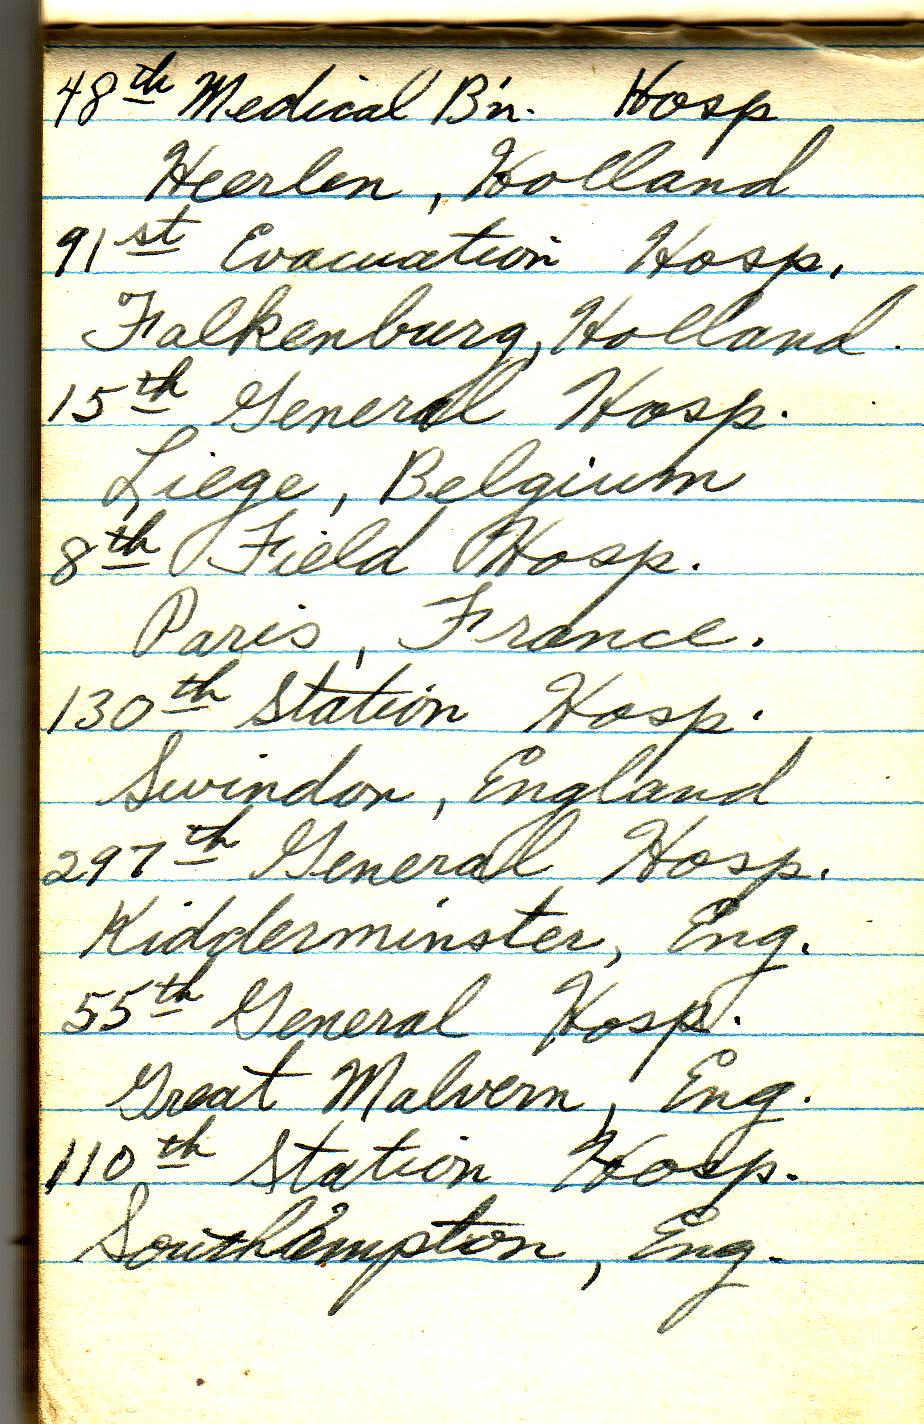 48th Medical B'n. Hosp
Heerlen, Holland
91st Evacuation Hosp.
Falkenburg, Holland.
15th General Hosp.
Liege, Belgium
8th Field Hosp.
Paris, France.
130th Station Hosp.
Swindon, England
297th General Hosp.
Kidderminster, Eng.
55th General Hosp.
Great Malvern, Eng.
110th Station Hosp.
Southampton, Eng.